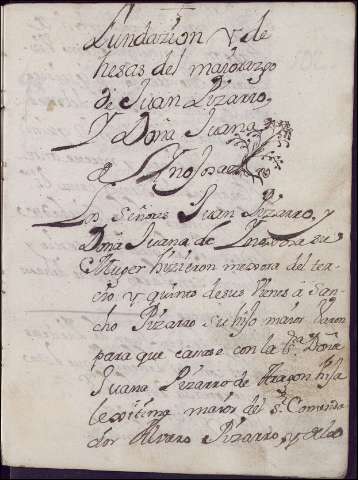 Fundazion y de
hesas del maiorazgo
de Juan Pizarro,
Y Doña Juana
de Hinojosa
Los señores Juan Pizarro, y
Doña Juana de Hinojosa su
Muger hizieron mejora del ter-
cio y quinto de sus vienes á San-
cho Pizarro su hijo maior varon
para que casase con la s.ª Doña
Juana Pizarro de Aragon hija
lexitima maior del s.r Comenda
dor Alvaro Pizarro, y de la